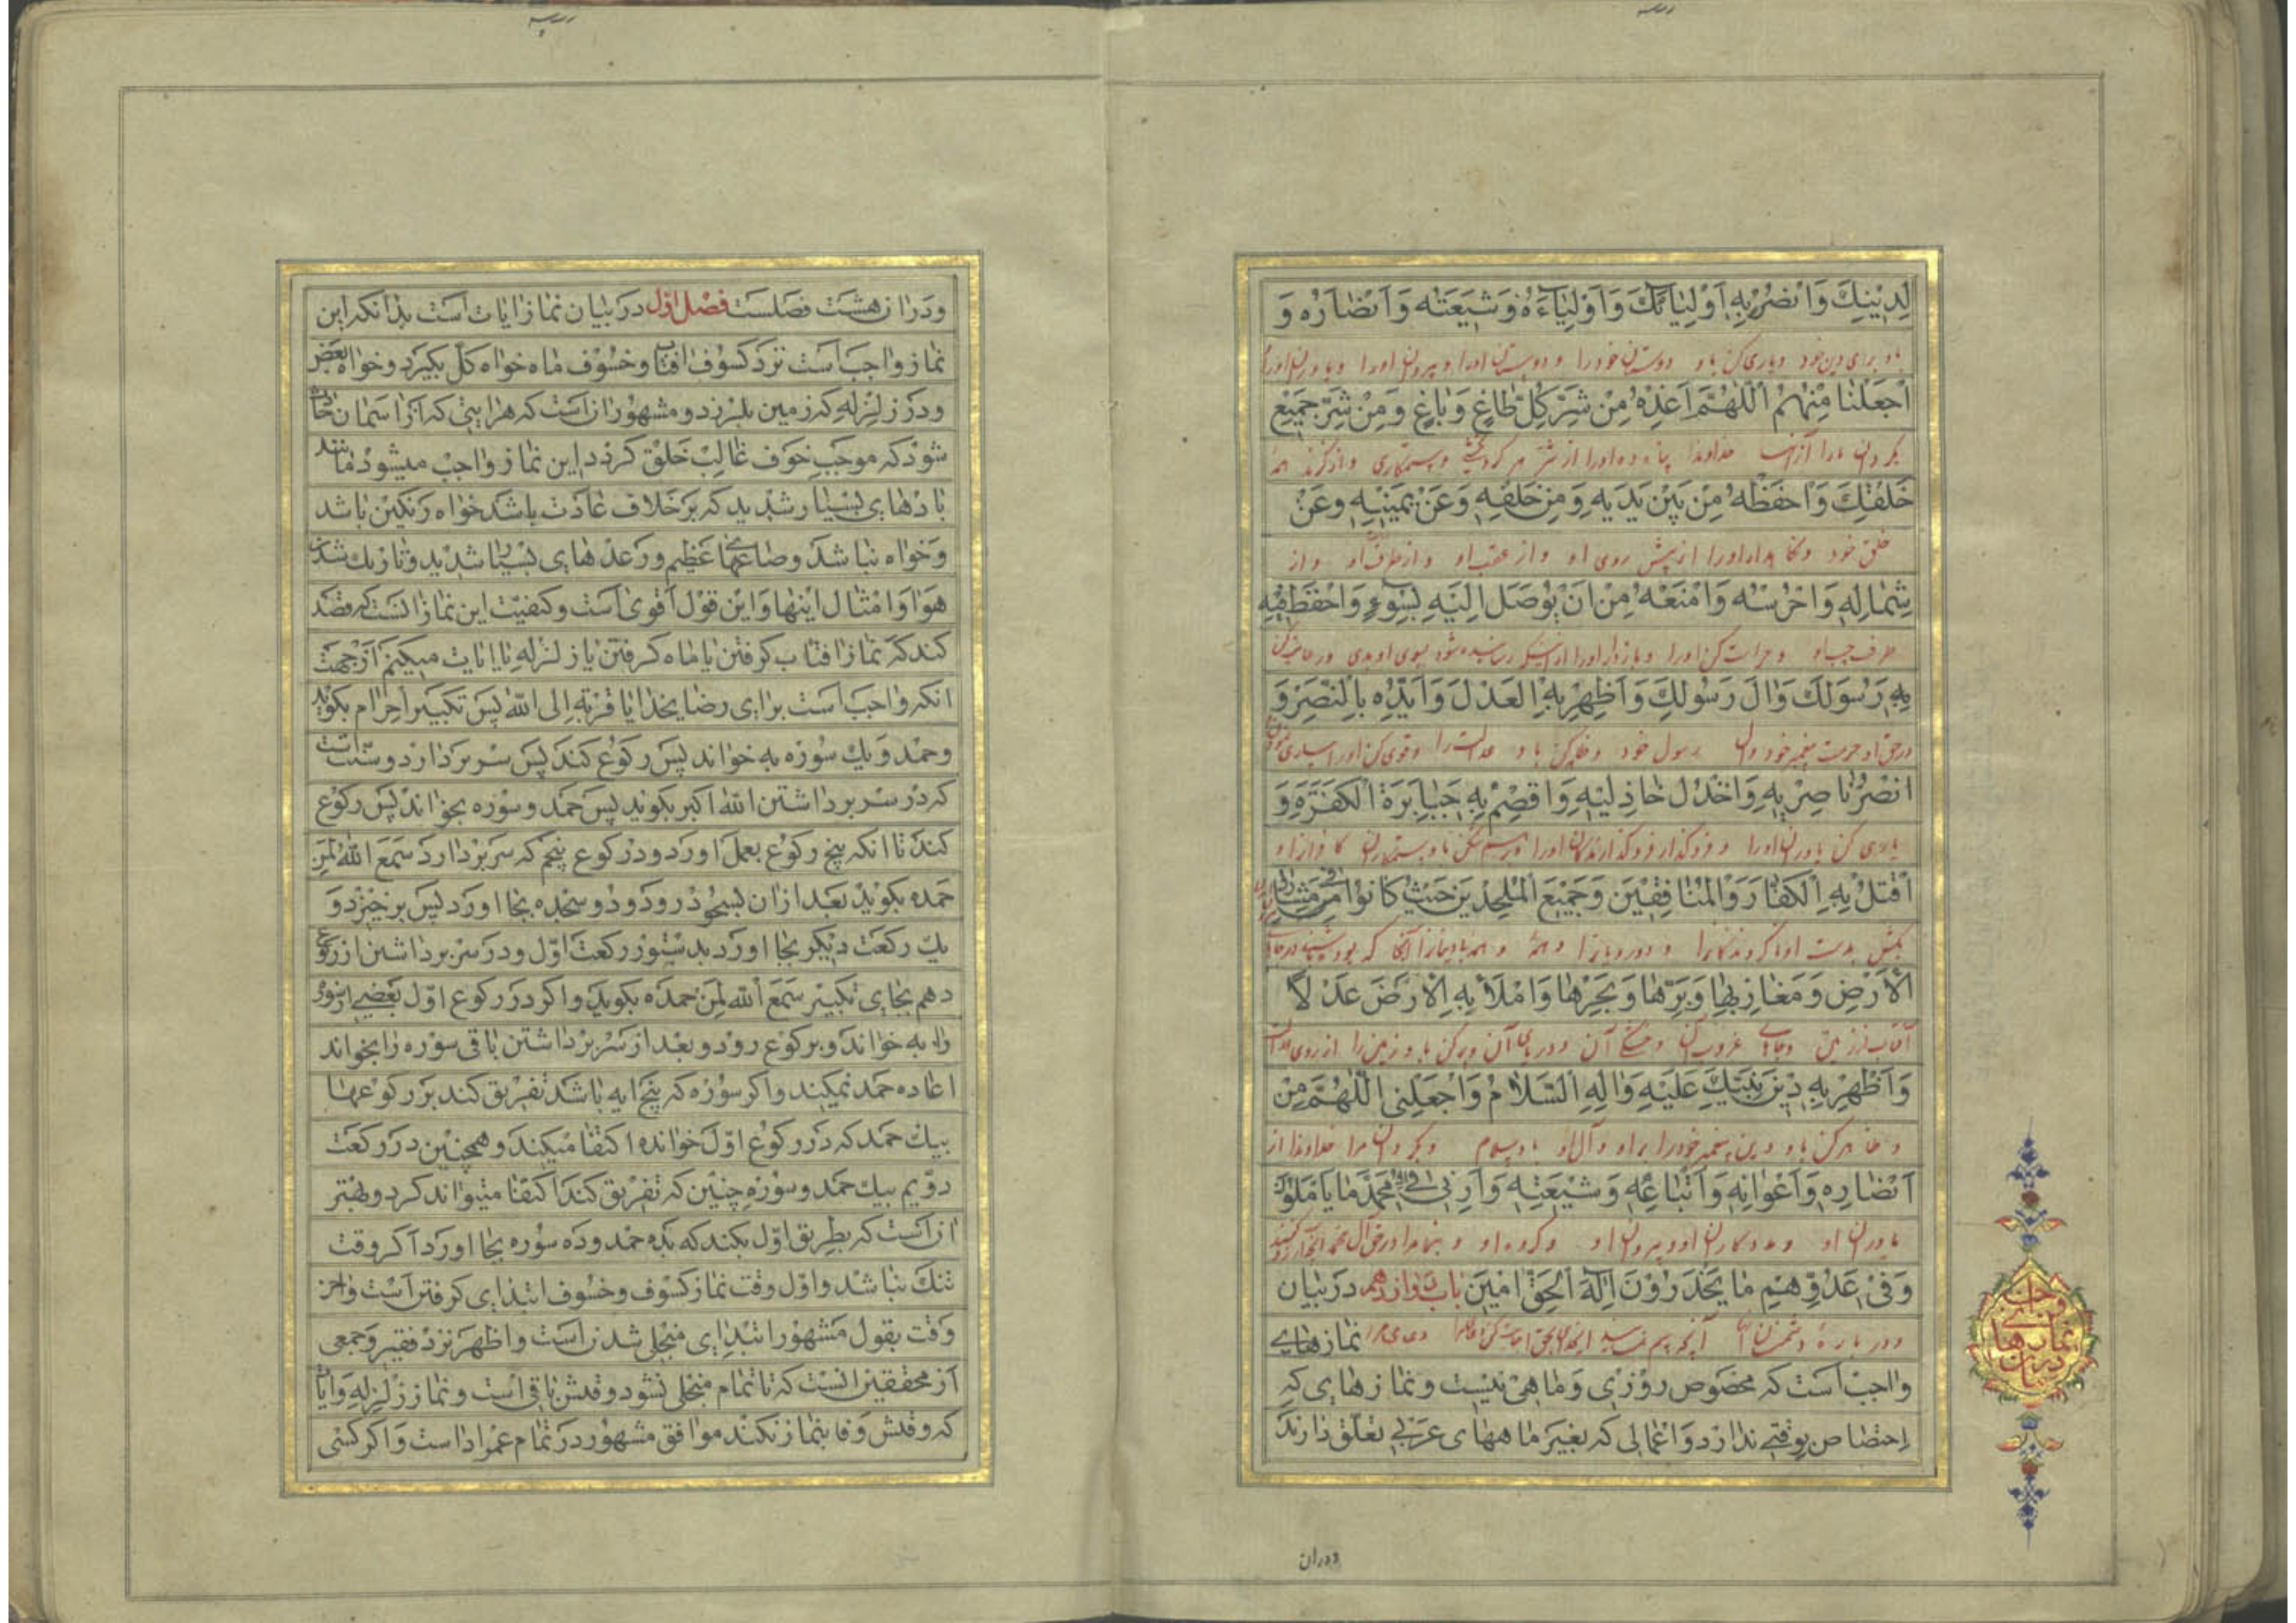 لِدِينِكَ وَانْصُرْ بِهِ اَوْلِيَائَكَ وَاَوْلِيَاءَهُ وَشِيعَتَهُ وَاَنْصَارَهُ وَ
باو برای دین خود و یاری کن باو دوستان خود را و دوستان او را و پیروان او را و یاوران او را
اجْعَلْنَا مِنْهُمْ اَللّٰهُمَّ اَعِذْهُ مِنْ شَرِّ كُلِّ طَاغٍ وَبَاغٍ وَمِنْ شَرِّ جَمِيعِ
بگردان ما را از آنها خداوندا پناه ده او را از شر هر گردنکشی و ستمکاری و از گزند همه
خَلْقِكَ وَاحْفَظْهُ مِنْ بَيْنِ يَدَيْهِ وَمِنْ خَلْفِهِ وَعَنْ يَمِينِهِ وَعَنْ
خلق خود و نگاهدار او را از پیش روی او و از عقب او و از طرف راست او و از
شِمَالِهِ وَاحْرُسْهُ وَامْنَعْهُ مِنْ اَنْ يُوصَلَ اِلَيْهِ بِسُوءٍ وَاحْفَظْ فِيهِ
طرف چپ او و حراست کن او را و بازدار او را از اینکه رسانیده شود بسوی او بدی و
بِهِ رَسُولَكَ وَالَ رَسُولِكَ وَاَظْهِرْ بِهِ الْعَدْلَ وَاَيِّدْهُ بِالنَّصْرِ وَ
در حق او حرمت پیغمبر خود و ال رسول خود و ظاهر کن باو عدالت را و قوی کن او را بیاری
انْصُرْ نَاصِرِيهِ وَاخْذُلْ خَاذِلِيهِ وَاقْصِمْ بِهِ جَبَابِرَةَ الْكَفَرَةِ وَ
یاری کن یاوران او را و فروگذار فروگذارندگان او را و درهم شکن باو ستمکاران کافران را و
اقْتُلْ بِهِ الْكُفَّارَ وَالْمُنَافِقِينَ وَجَمِيعَ الْمُلْحِدِينَ حَيْثُ كَانُوا مِنْ مَشَارِقِ
بکش بدست او ناگروندگان را و دورویان را و همه
الْاَرْضِ وَمَغَارِبِهَا وَبَرِّهَا وَبَحْرِهَا وَامْلَأْ بِهِ الْاَرْضَ عَدْلًا
آفتاب از زمین و جاهای غروب آن و خشکی آن و دریای آن و پر کن باو زمین را از روی عدالت
وَاَظْهِرْ بِهِ دِينَ نَبِيِّكَ عَلَيْهِ وَالِهِ السَّلَامُ وَاجْعَلْنِي اللّٰهُمَّ مِنْ
و ظاهر کن باو دین پیغمبر خود را بر او و آل او باد سلام و بگردان مرا خداوندا از
اَنْصَارِهِ وَاَعْوَانِهِ وَاَتْبَاعِهِ وَشِيعَتِهِ وَاَرِنِي فِي الِ مُحَمَّدٍ مَا يَأْمُلُونَ
یاوران او و مددکاران او و پیروان او و گروه او و بنما مرا در حق ال محمد آنچه آرزو کنند
وَفِي عَدُوِّهِمْ مَا يَحْذَرُونَ اِلٰهَ الْحَقِّ امِينَ باب دوازدهم در بیان
و در باره دشمنان آنها آنچه نمازهای
واجب است که مخصوص روزی و ماهی نیست و نمازهای که
اختصاص بوقتی ندارد و اعمالی که بغیر ماههای عربی تعلق دارند
در بیان نمازهای واجبی
ودران
ودران هشت فصلست فصل اول در بیان نماز ایات است بدانکه این
نماز واجب است نزد کسوف افتاب و خسوف ماه خواه کل بگیرد و خواه بعض
ودر زلزله که زمین بلرزد و مشهور ان است که هر ایتی که از اسمان حادث
شود که موجب خوف غالب خلق گردد این نماز واجب میشود مانند
بادهای بسیار شدید که بر خلاف عادت باشد خواه رنگین باشد
وخواه نباشد وصاعقهای عظیم ورعدهای بسیار شدید وتاریك شدن
هوا وامثال اینها واین قول اقوی است وکیفیت این نماز انست که قصد
کند که نماز افتاب گرفتن یا ماه گرفتن یا زلزله یا ایات میکنم از جهت
انکه واجب است برای رضای خدا یا قربة الی الله پس تکبیر احرام بگوید
وحمد ویك سوره به خواند پس رکوع کند پس سر بردارد وسنت است
که در سر برداشتن الله اکبر بگوید پس حمد وسوره بخواند پس رکوع
کند تا انکه پنج رکوع بعمل اورد ودر رکوع پنجم که سر بردارد سمع الله لمن
حمده بگوید بعد ازان بسجود رود ودو سجده بجا اورد پس برخیزد و
یك رکعت دیگر بجا اورد بدستور رکعت اول ودر سر برداشتن از رکوع
دهم بجای تکبیر سمع الله لمن حمده بگوید واگر در رکوع اول بعضی از سوره
را به خواند وبرکوع رود وبعد از سر برداشتن باقی سوره را بخواند
اعاده حمد نمیکند واگر سوره که پنج ایه باشد تفریق کند بر رکوعها
بیك حمد که در رکوع اول خوانده اکتفا میکند وهمچنین در رکعت
دویم بیك حمد وسوره چنین که تفریق کند اکتفا میتواند کرد وبهتر
ان است که بطریق اول بکند که بده حمد وده سوره بجا اورد اگر وقت
تنك نباشد واول وقت نماز کسوف وخسوف ابتدای گرفتن است واخر
وقت بقول مشهور ابتدای منجلی شدن است واظهر نزد فقیر وجمعی
از محققین انست که تا تمام منجلی نشود وقتش باقی است ونماز زلزله وایاتی
که وقتش وفا بنماز نکند موافق مشهور در تمام عمر ادا است واگر کسی